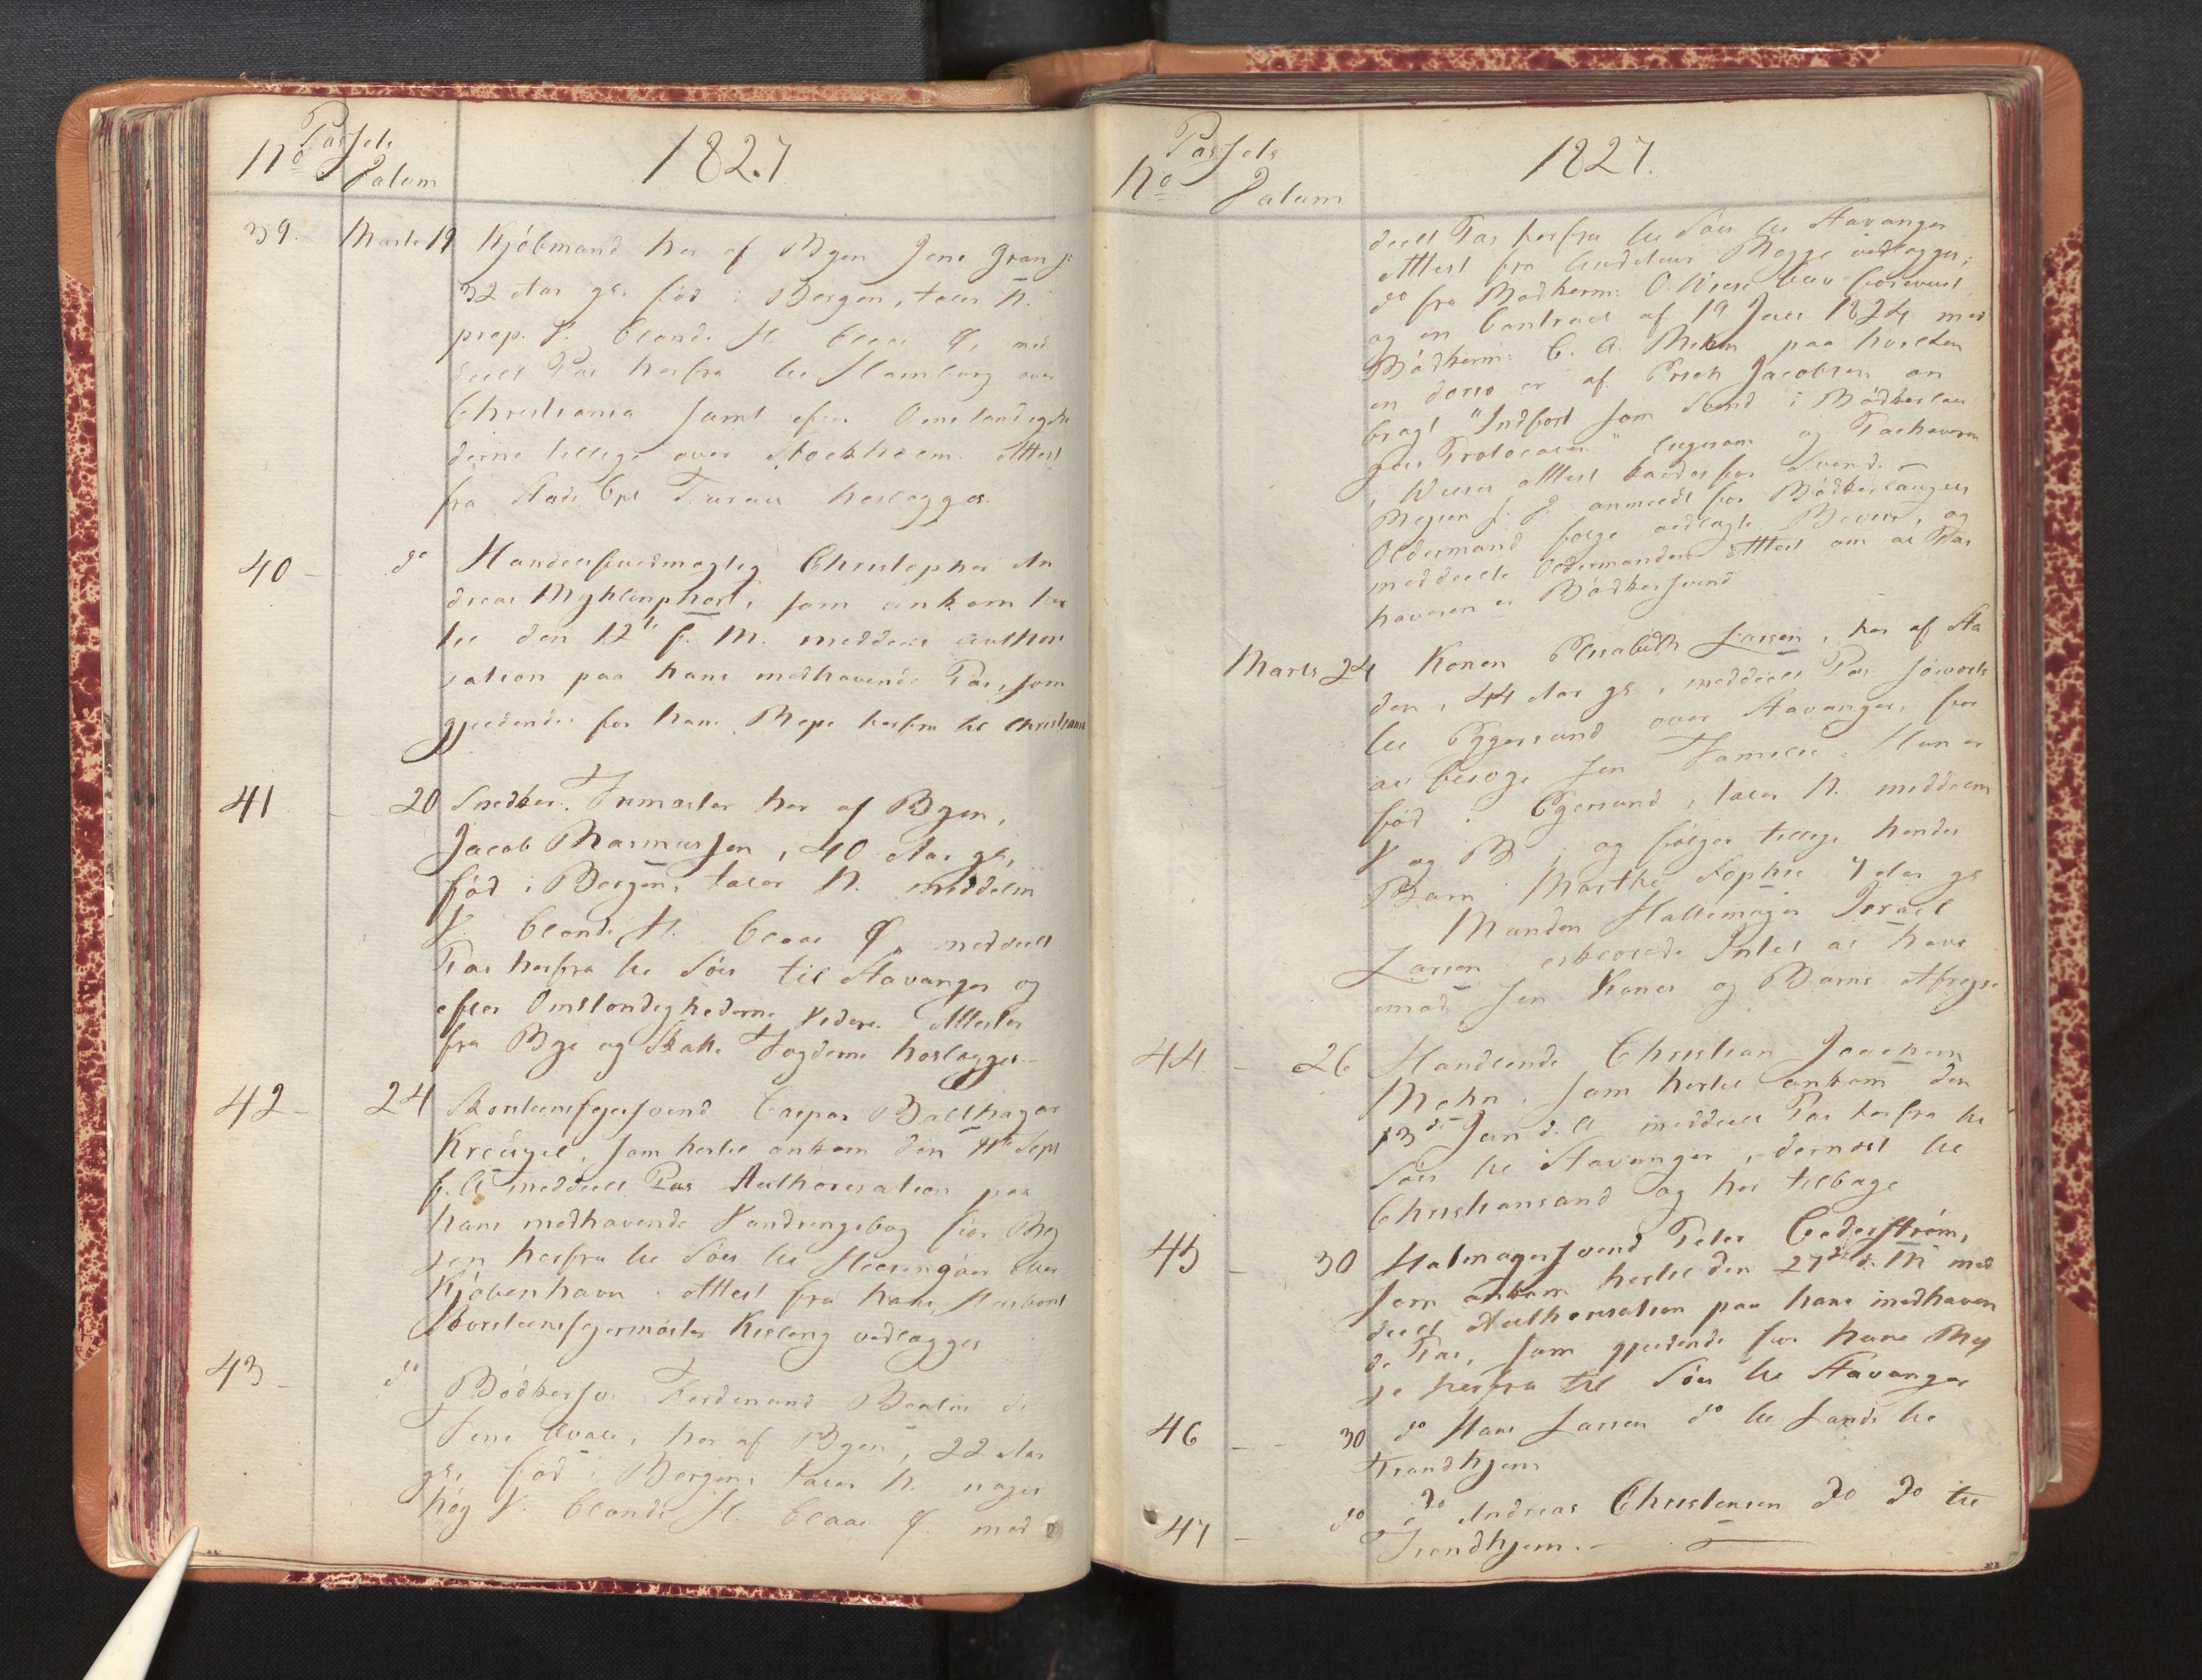 Passets
No Datum
1827
39. Marts 19 Kjöbmand her af Byen Jens Gran jr
32 Aar gl. fød i Bergen, taler N.
prop. V. blonde H. blaae Ø, med
deelt Pas herfra til Hamborg over
Christiania samt efter Omstændighe
derne tillige over Stockholm. Attest
fra Stads Cpt hoslægges.
40 - do Handelsfuldmægtig Christopher An
dreas Myhlenphort, som ankom her
til den 12te f. M. meddeelt Authori
sation paa hans medhavende Pas, som
gjeldende for hans Reise herfra til Christiania
41 - 20 Snedker her af Byen,
Jacob Rasmussen, 40 Aar gl,
fød i Bergen, taler N. middelm
V. blonde H. blaae Ø, meddeelt
Pas herfra til Söes til Stavanger og
efter Omstændighederne videre. Attester
fra Bye og Skatte Fogderne hoslægges.-
42 - 24 Skorsteensfejersvend Caspar Balthazar
Kreutzel, som hertil ankom den 11te Sept
f. A meddeelt Pas Authorisation paa
hans medhavende Vandringsbog for Rey
sen herfra til Söes til Helsingöer over
Kjöbenhavn. Attest fra hans Husbond
Skorsteensfejermester Kisling vedlægges
43 - do Bödkersv. Ferdinand
Jens her af Byen, 22 Aar
gl, fød i Bergen, taler N. noget
høy V. blonde H. blaae Ø. med
Passets
No Datum
1827.
deelt Pas herfra til Söes til Stavanger
Attest fra Rogge vedlægges;
do fra Bødkerm: O. Wiese blev foreviist
og en Contract af 19 Juli 1824 med
Bödkerm: C. A. Mehn paa hvilken
in dorso er af Erich Jacobsen an
bragt "Indført som Svend i Bödkerlau
gets Protocoll" ligesom og Pashaveren
i Wieses Attest kaldes for Svend.
Reysen s. D. anmeldt for Bödkerlaugets
Oldermand følge vedlagte Beviis, og
meddeelte Oldermanden Attest om at Pas
haveren er Bödkersvend
Marts 24 Konen Elisabeth Larsen, her af Sta
den, 44 Aar gl, meddeelt Pas søeværts
til Eggersund over Stavanger, for
at besøge sin Familie. Hun er
fød i Egersund, taler N. middelm
V og B, og følger tillige hendes
Barn Marthe Sophie 7 Aar gl
Manden Hattemager Israel
Larsen erklærede Intet at have
imod sin Kones og Barns Afreyse
44 - 26 Handlende Christian Joachim
Mohn, som hertil ankom den
13de Jan d. A meddeelt Pas herfra til
Söes til Stavanger, dernæst til
Christiansand og her tilbage
45 - 30 Hatmagersvend Peter Cederström,
som ankom hertil den 27de d. M med
deelt Authorisation paa hans medhaven
de Pas, som gjeldende for hans Rey
se herfra til Söes til Stavanger
46 - - 30 do Hans Larsen do til Lands til
Trondhjem
47 - do do Andreas Christensen do do til
Trondhjem.-